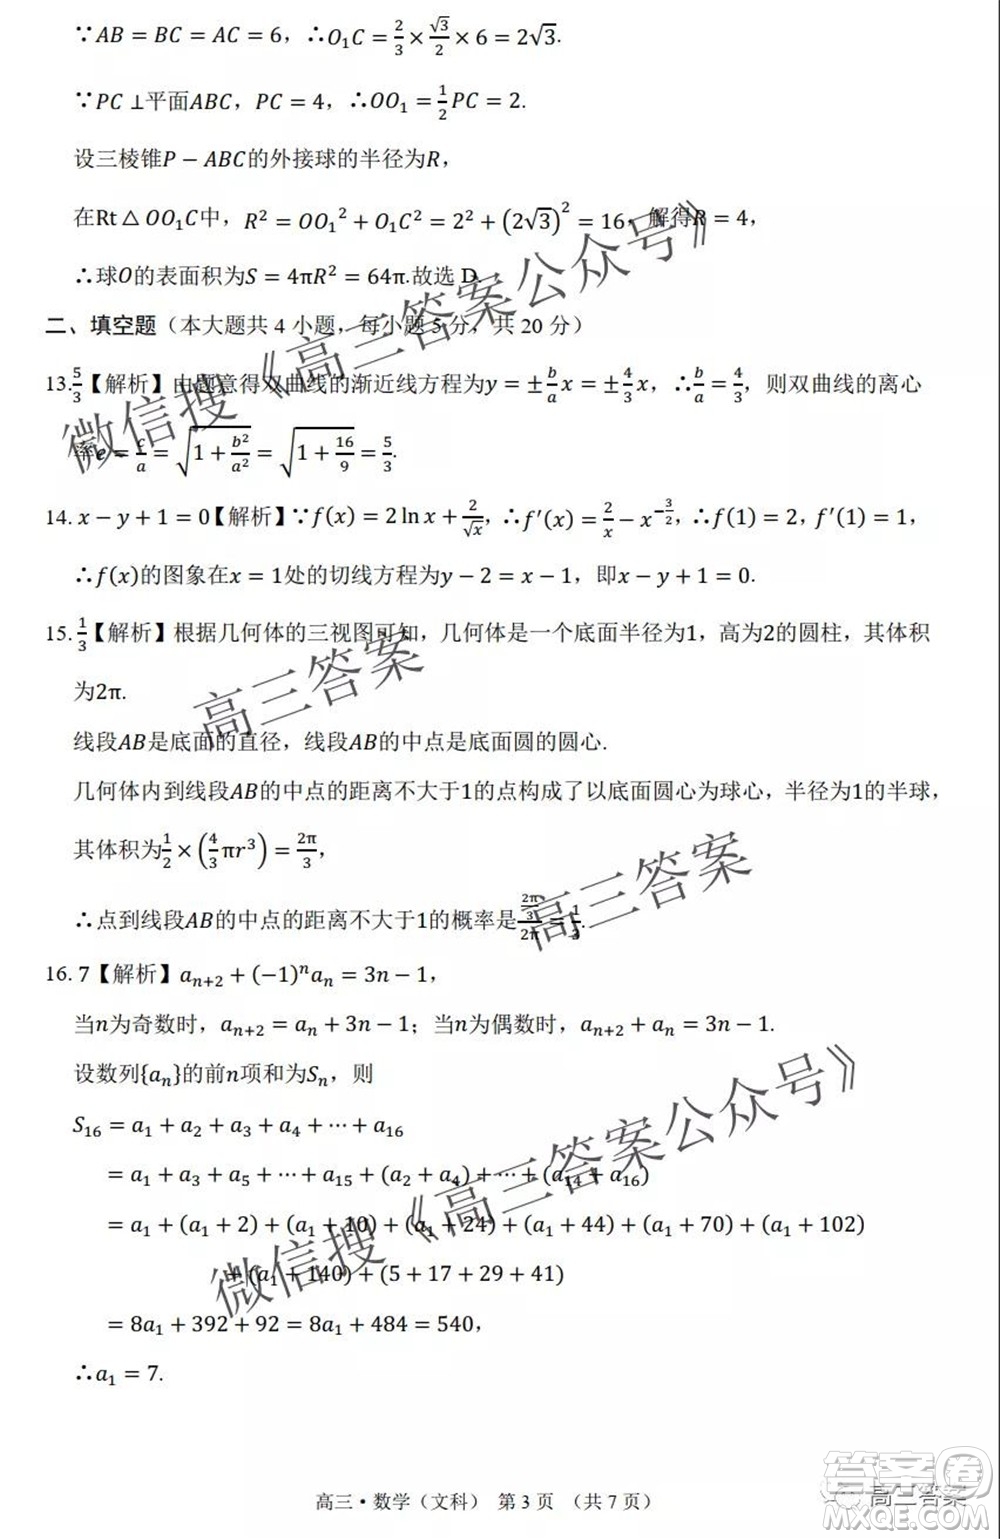 ∵AB = BC = AC = 6，∴O₁C = 2/3 × √3/2 × 6 = 2√3.
∵PC ⊥平面ABC，PC = 4，∴OO₁ = 1/2 PC = 2.
设三棱锥P − ABC的外接球的半径为R，
在Rt△OO₁C中，R² = OO₁² + O₁C² = 2² + (2√3)² = 16，解得R = 4，
∴球O的表面积为S = 4πR² = 64π.故选 D.
二、填空题（本大题共 4 小题，每小题 5 分，共 20 分）
13. 5/3【解析】由题意得双曲线的渐近线方程为y = ± b/a x = ± 4/3 x，∴ b/a = 4/3，则双曲线的离心
率e = c/a = √(1 + b²/a²) = √(1 + 16/9) = 5/3.
14. x − y + 1 = 0【解析】∵f(x) = 2 ln x + 2/√x，∴f′(x) = 2/x − x^(−3/2)，∴f(1) = 2，f′(1) = 1，
∴f(x)的图象在x = 1处的切线方程为y − 2 = x − 1，即x − y + 1 = 0.
15. 1/3【解析】根据几何体的三视图可知，几何体是一个底面半径为1，高为2的圆柱，其体积
为2π.
线段AB是底面的直径，线段AB的中点是底面圆的圆心.
几何体内到线段AB的中点的距离不大于1的点构成了以底面圆心为球心，半径为1的半球，
其体积为 1/2 × (4/3 πr³) = 2π/3，
∴点到线段AB的中点的距离不大于1的概率是 (2π/3)/2π = 1/3.
16. 7【解析】aₙ₊₂ + (−1)ⁿaₙ = 3n − 1，
当n为奇数时，aₙ₊₂ = aₙ + 3n − 1；当n为偶数时，aₙ₊₂ + aₙ = 3n − 1.
设数列{aₙ}的前n项和为Sₙ，则
S₁₆ = a₁ + a₂ + a₃ + a₄ + ⋯ + a₁₆
= a₁ + a₃ + a₅ + ⋯ + a₁₅ + (a₂ + a₄) + ⋯ + (a₁₄ + a₁₆)
= a₁ + (a₁ + 2) + (a₁ + 10) + (a₁ + 24) + (a₁ + 44) + (a₁ + 70) + (a₁ + 102)
+ (a₁ + 140) + (5 + 17 + 29 + 41)
= 8a₁ + 392 + 92 = 8a₁ + 484 = 540，
∴a₁ = 7.
高三·数学（文科） 第 3 页 （共 7 页）
微信搜《高三答案公众号》
高三答案
高三答案
微信搜《高三答案公众号》
答案圈
高三答案
MXQE.COM